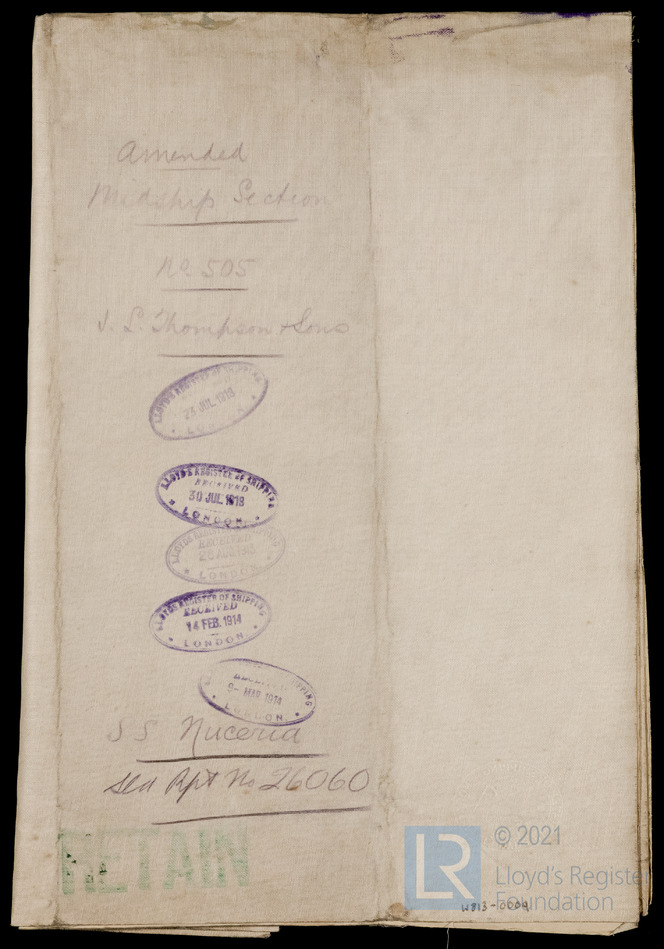 Amended
Midship Section
No 505
J. L. Thompson & Sons
LLOYD'S REGISTER OF SHIPPING
23 JUL 1913
LONDON
LLOYD'S REGISTER OF SHIPPING
RECEIVED
30 JUL 1913
LONDON
LLOYD'S REGISTER OF SHIPPING
RECEIVED
1913
LONDON
LLOYD'S REGISTER OF SHIPPING
RECEIVED
14 FEB. 1914
LONDON
9- MAR 1914
LONDON
SS Nuceria
Sld Rpt No 26060
RETAIN
LR
© 2021
Lloyd's Register
Foundation
W813-0004